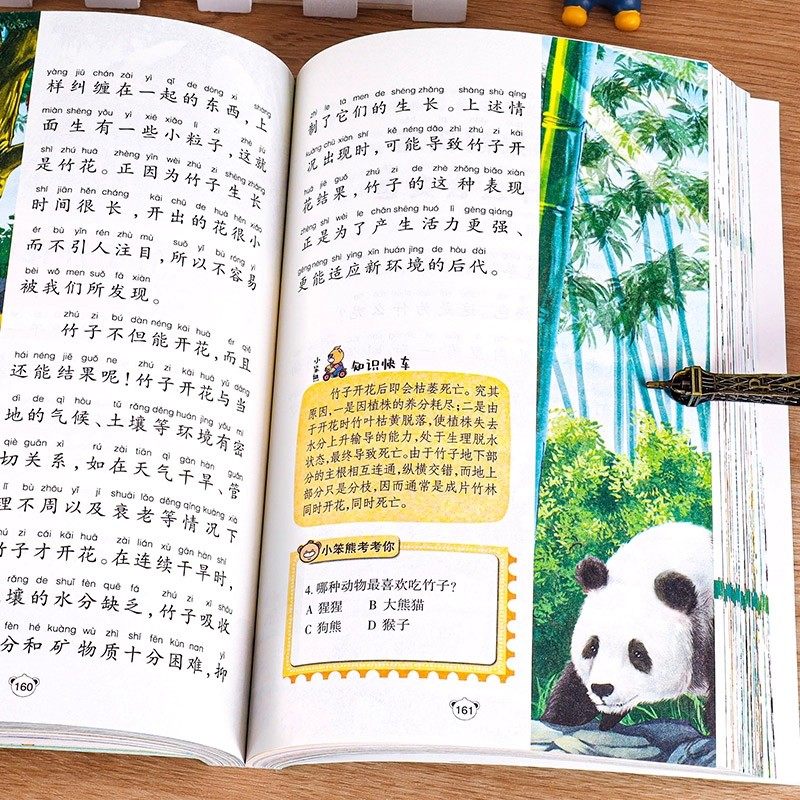 yàng jiū chán zài yì qǐ de dōng xi shàng
样纠缠在一起的东西，上
miàn shēng yǒu yì xiē xiǎo lì zǐ zhè jiù
面生有一些小粒子，这就
shì zhú huā zhèng yīn wèi zhú zi shēng zhǎng
是竹花。正因为竹子生长
shí jiān hěn cháng kāi chū de huā hěn xiǎo
时间很长，开出的花很小
ér bù yǐn rén zhù mù suǒ yǐ bù róng yì
而不引人注目，所以不容易
bèi wǒ men suǒ fā xiàn
被我们所发现。
zhú zi bú dàn néng kāi huā ér qiě
竹子不但能开花，而且
hái néng jiē guǒ ne zhú zi kāi huā yǔ dāng
还能结果呢！竹子开花与当
dì de qì hòu tǔ rǎng děng huán jìng yǒu mì
地的气候、土壤等环境有密
qiè guān xì rú zài tiān qì gān hàn guǎn
切关系，如在天气干旱、管
lǐ bù zhōu yǐ jí shuāi lǎo děng qíng kuàng xià
理不周以及衰老等情况下
zhú zi cái kāi huā zài lián xù gān hàn shí
竹子才开花。在连续干旱时，
rǎng de shuǐ fèn quē fá zhú zi xī shōu
壤的水分缺乏，竹子吸收
fèn hé kuàng wù zhì shí fēn kùn nan yì
分和矿物质十分困难，抑
160
zhì le tā men de shēng zhǎng shàng shù qíng
制了它们的生长。上述情
kuàng chū xiàn shí kě néng dǎo zhì zhú zi kāi
况出现时，可能导致竹子开
huā jiē guǒ zhú zi de zhè zhǒng biǎo xiàn
花结果，竹子的这种表现
zhèng shì wèi le chǎn shēng huó lì gèng qiáng
正是为了产生活力更强、
gèng néng shì yìng xīn huán jìng de hòu dài
更能适应新环境的后代。
小笨熊 知识快车
竹子开花后即会枯萎死亡。究其
原因，一是因植株的养分耗尽；二是由
于开花时竹叶枯黄脱落，使植株失去
水分上升输导的能力，处于生理脱水
状态，最终导致死亡。由于竹子地下部
分的主根相互连通，纵横交错，而地上
部分只是分枝，因而通常是成片竹林
同时开花，同时死亡。
小笨熊考考你
4. 哪种动物最喜欢吃竹子？
A 猩猩 B 大熊猫
C 狗熊 D 猴子
161